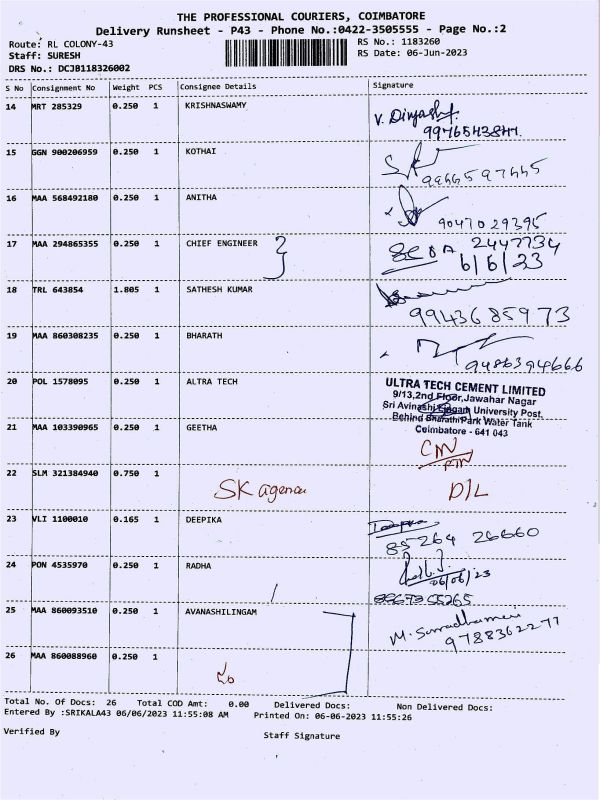 THE PROFESSIONAL COURIERS, COIMBATORE
Delivery Runsheet - P43 - Phone No.:0422-3505555 - Page No.:2
Route: RL COLONY-43 RS No.: 1183260
Staff: SURESH RS Date: 06-Jun-2023
DRS No.: DCJB118326002
S No Consignment No Weight PCS Consignee Details Signature
14 MRT 285329 0.250 1 KRISHNASWAMY
V. Divyash
15 GGN 900206959 0.250 1 KOTHAI
9966597445
16 MAA 568492180 0.250 1 ANITHA
9047029395
17 MAA 294865355 0.250 1 CHIEF ENGINEER 2447734
6/6/23
18 TRL 643854 1.805 1 SATHESH KUMAR
9943685973
19 MAA 860308235 0.250 1 BHARATH
9486394666
20 POL 1578095 0.250 1 ALTRA TECH ULTRA TECH CEMENT LIMITED
9/13,2nd Floor,Jawahar Nagar
Sri Avinashi lingam University Post,
Behind Bharathi Park Water Tank
Coimbatore - 641 043
21 MAA 103390965 0.250 1 GEETHA
22 SLM 321384940 0.750 1
SK agencies D/L
23 VLI 1100010 0.165 1 DEEPIKA Deepika
85264 26660
24 PON 4535970 0.250 1 RADHA
06/06/23
25 MAA 860093510 0.250 1 AVANASHILINGAM
9788362277
26 MAA 860088960 0.250 1
Total No. Of Docs: 26 Total COD Amt: 0.00 Delivered Docs: Non Delivered Docs:
Entered By :SRIKALA43 06/06/2023 11:55:08 AM Printed On: 06-06-2023 11:55:26
Verified By Staff Signature